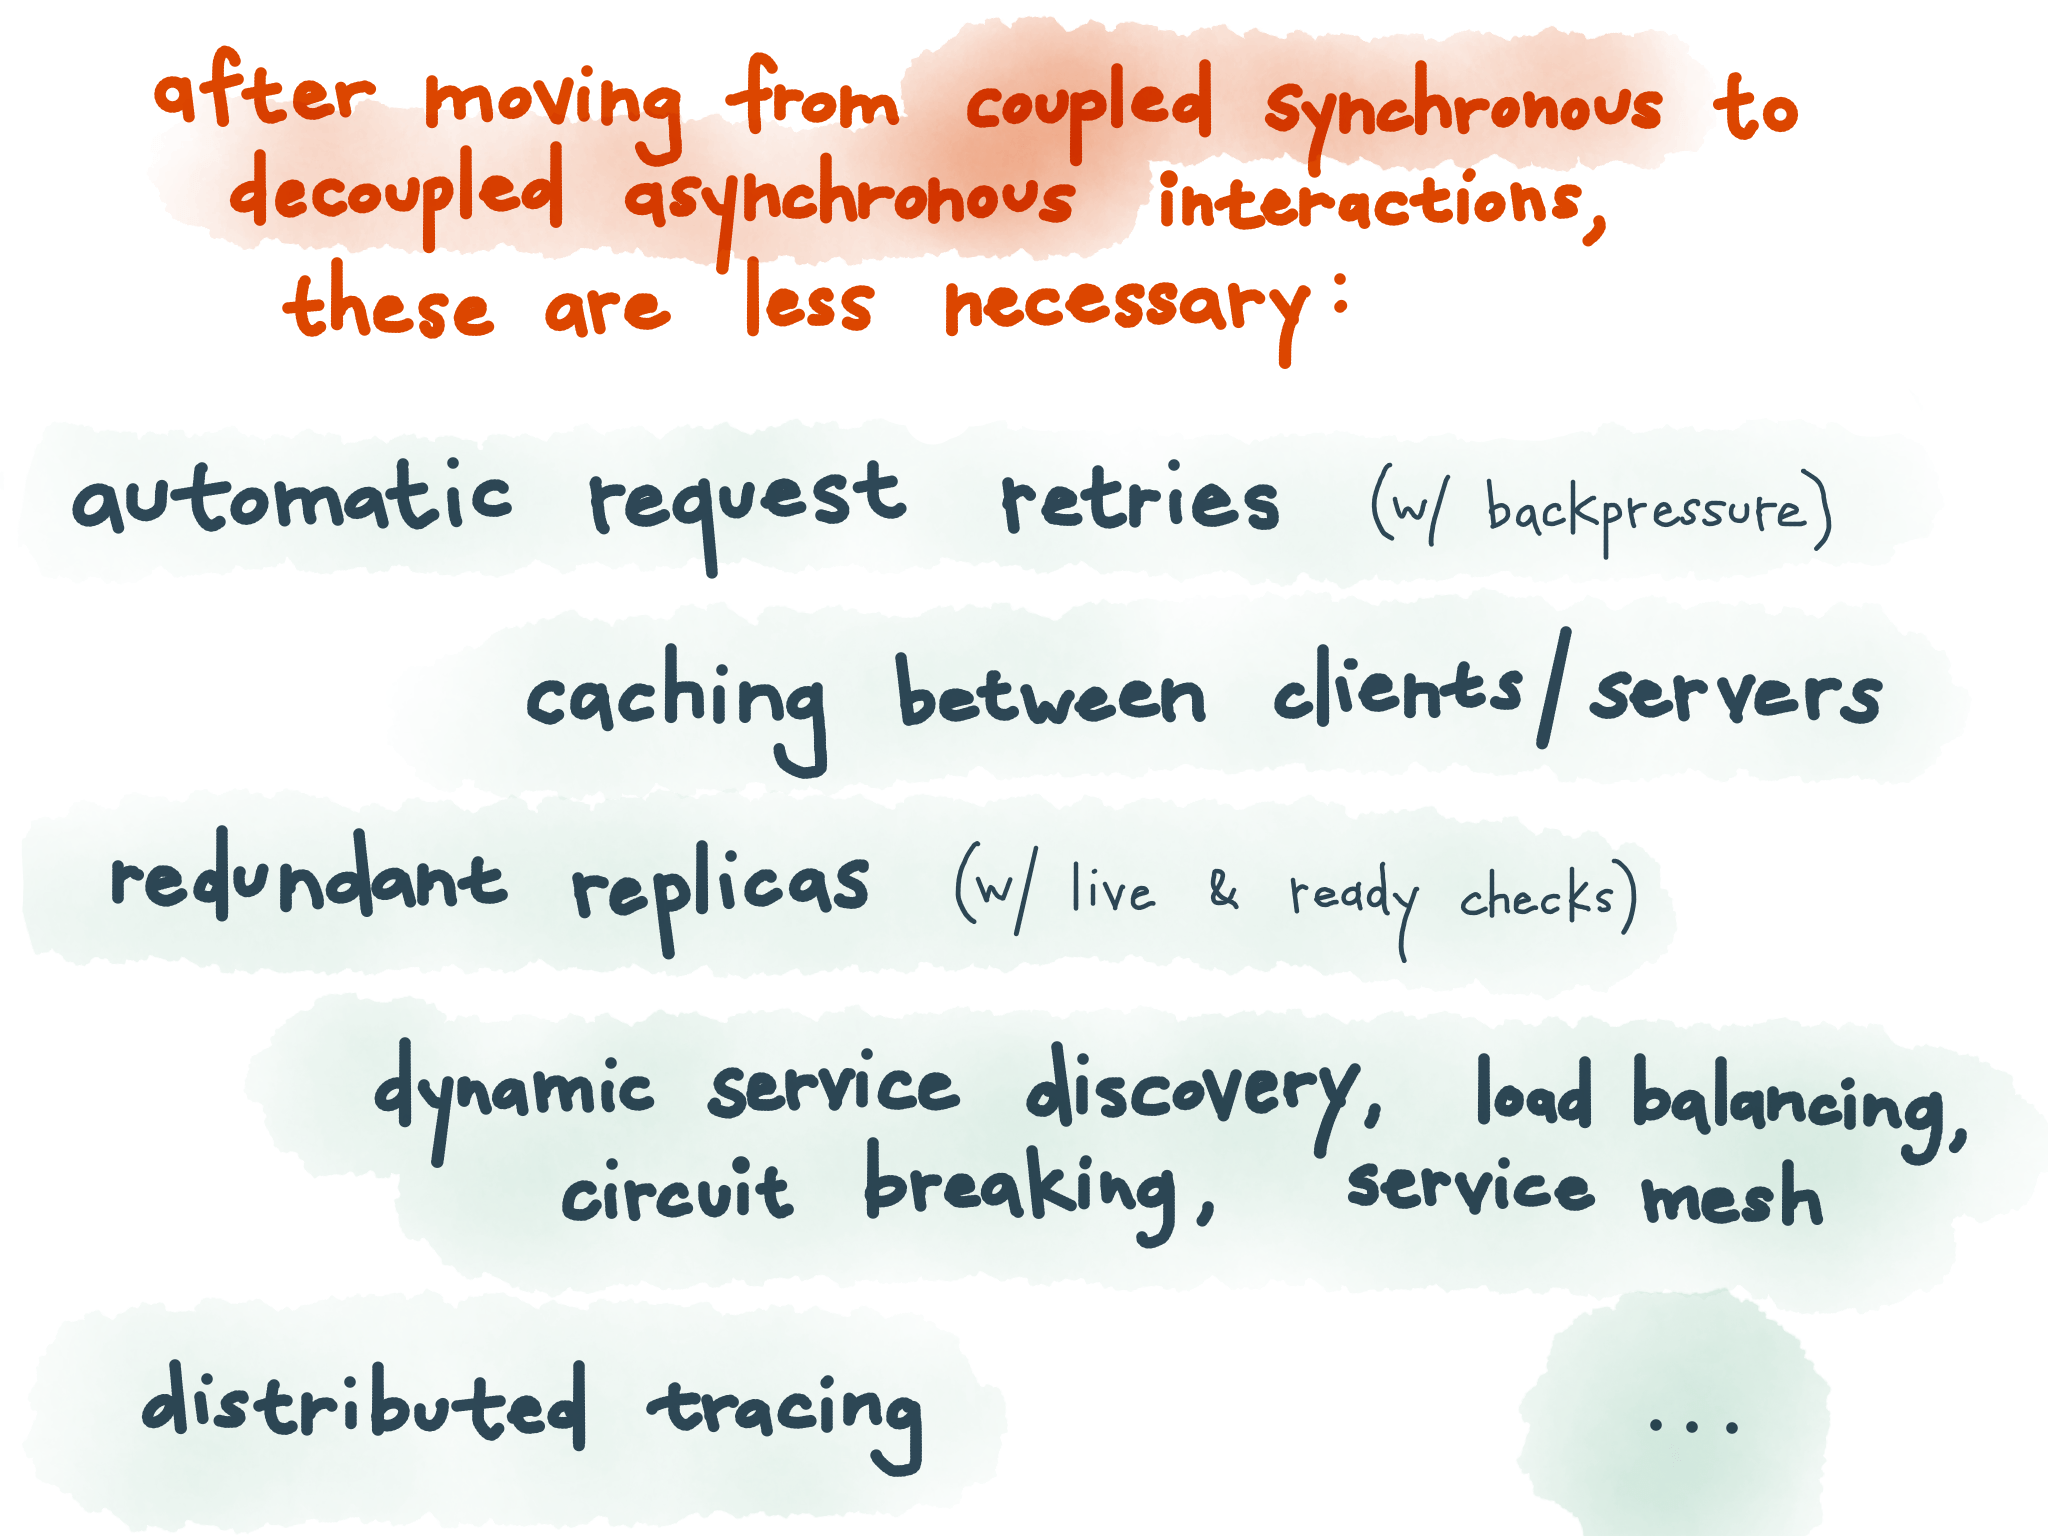 after moving from coupled synchronous to
decoupled asynchronous interactions,
these are less necessary:
automatic request retries (w/ backpressure)
caching between clients/servers
redundant replicas (w/ live & ready checks)
dynamic service discovery, load balancing,
circuit breaking, service mesh
distributed tracing
...